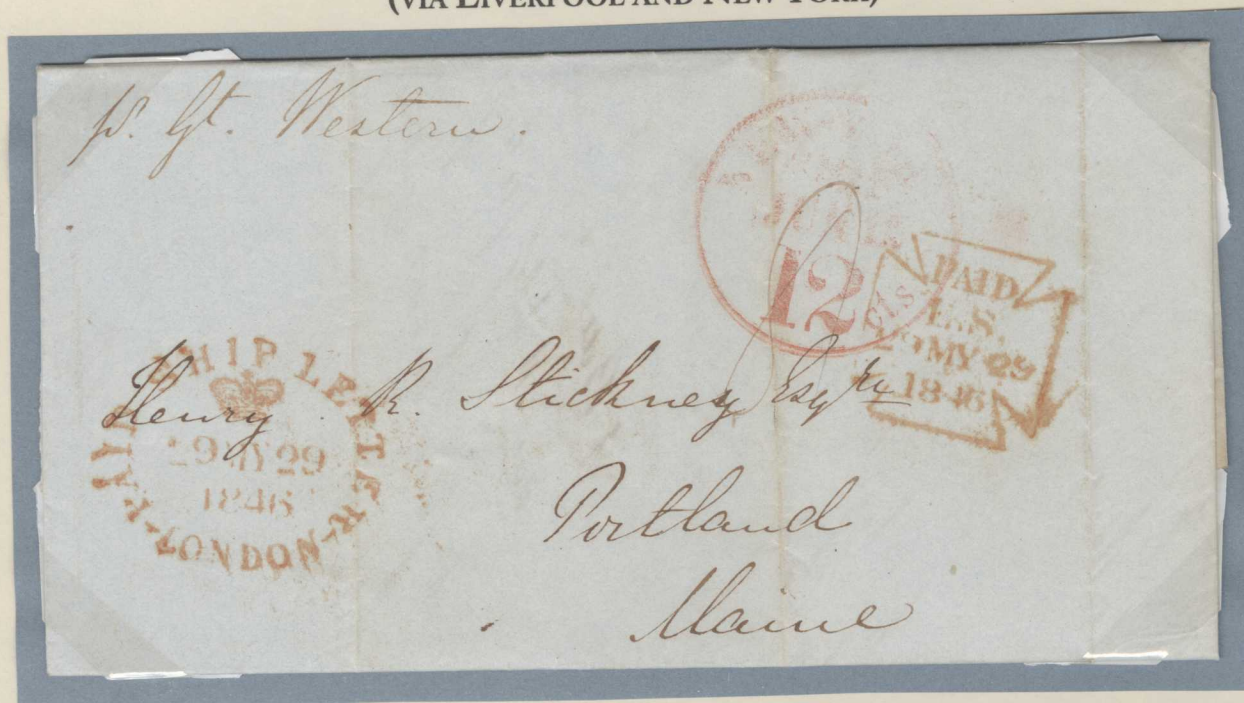 (VIA LIVERPOOL AND NEW YORK)
p. Gt. Western.
12
cts
PAID
L.S.
29 MY 29
1846
PAID SHIP LETTER
29 MY 29
1846
LONDON
Henry R. Stickney Esqre
Portland
Maine